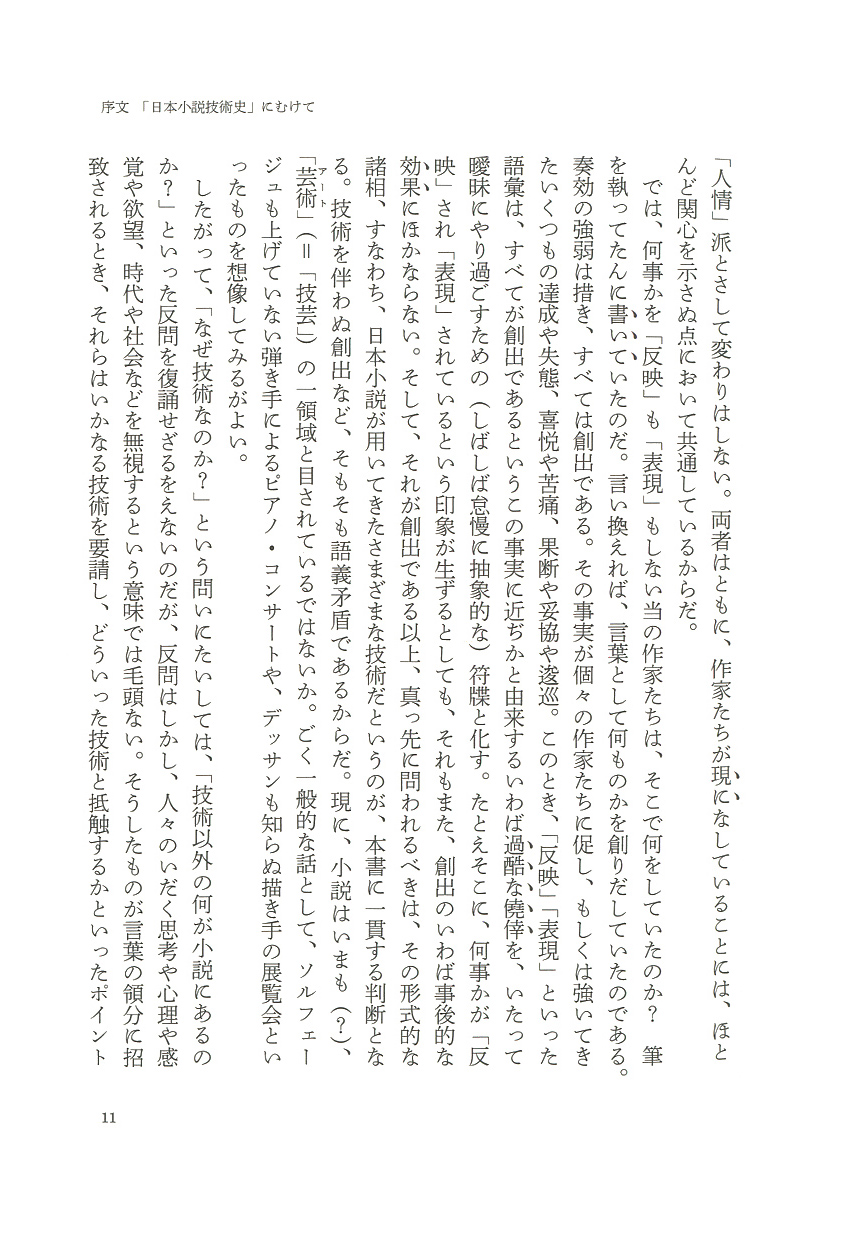 序文 「日本小説技術史」にむけて
「人情」派とさして変わりはしない。両者はともに、作家たちが現になしていることには、ほと
んど関心を示さぬ点において共通しているからだ。
では、何事かを「反映」も「表現」もしない当の作家たちは、そこで何をしていたのか？　筆
を執ってたんに書いていたのだ。言い換えれば、言葉として何ものかを創りだしていたのである。
奏効の強弱は措き、すべては創出である。その事実が個々の作家たちに促し、もしくは強いてき
たいくつもの達成や失態、喜悦や苦痛、果断や妥協や逡巡。このとき、「反映」「表現」といった
語彙は、すべてが創出であるというこの事実に近ぢかと由来するいわば過酷な僥倖を、いたって
曖昧にやり過ごすための（しばしば怠慢に抽象的な）符牒と化す。たとえそこに、何事かが「反
映」され「表現」されているという印象が生ずるとしても、それもまた、創出のいわば事後的な
効果にほかならない。そして、それが創出である以上、真っ先に問われるべきは、その形式的な
諸相、すなわち、日本小説が用いてきたさまざまな技術だというのが、本書に一貫する判断とな
る。技術を伴わぬ創出など、そもそも語義矛盾であるからだ。現に、小説はいまも（？）、
「芸術」（＝「技芸」）の一領域と目されているではないか。ごく一般的な話として、ソルフェー
アート
ジュも上げていない弾き手によるピアノ・コンサートや、デッサンも知らぬ描き手の展覧会とい
ったものを想像してみるがよい。
したがって、「なぜ技術なのか？」という問いにたいしては、「技術以外の何が小説にあるの
か？」といった反問を復誦せざるをえないのだが、反問はしかし、人々のいだく思考や心理や感
覚や欲望、時代や社会などを無視するという意味では毛頭ない。そうしたものが言葉の領分に招
致されるとき、それらはいかなる技術を要請し、どういった技術と抵触するかといったポイント
11